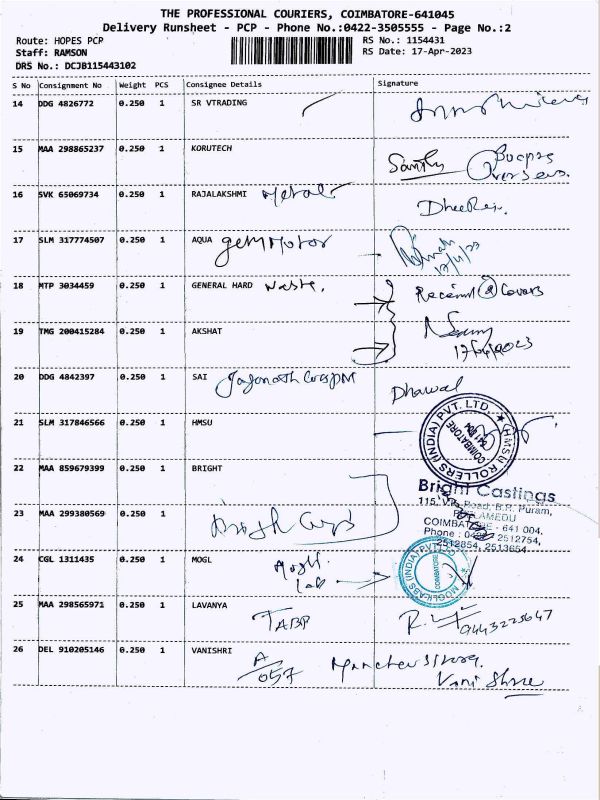 THE PROFESSIONAL COURIERS, COIMBATORE-641045
Delivery Runsheet - PCP - Phone No.:0422-3505555 - Page No.:2
Route: HOPES PCP RS No.: 1154431
Staff: RAMSON RS Date: 17-Apr-2023
DRS No.: DCJB115443102
S No Consignment No Weight PCS Consignee Details Signature
14 DDG 4826772 0.250 1 SR VTRADING
15 MAA 298865237 0.250 1 KORUTECH
16 SVK 65069734 0.250 1 RAJALAKSHMI Metals
17 SLM 317774507 0.250 1 AQUA gem Motor
18 MTP 3034459 0.250 1 GENERAL HARD Waste. Received 2 Covers
19 TMG 200415284 0.250 1 AKSHAT
20 DDG 4842397 0.250 1 SAI Dhawal
21 SLM 317846566 0.250 1 HMSU
HMSU ROLLERS (INDIA) PVT. LTD.
COIMBATORE
641 004
22 MAA 859679399 0.250 1 BRIGHT
Bright Castings
115, Road, B.R. Puram,
PEELAMEDU
COIMBATORE - 641 004.
Phone : 0422 2512754,
2512854, 2513654
23 MAA 299380569 0.250 1
24 CGL 1311435 0.250 1 MOGL Mogli Lab
MOGLILABS (INDIA) PVT LTD
COIMBATORE
25 MAA 298565971 0.250 1 LAVANYA TABP
26 DEL 910205146 0.250 1 VANISHRI A/057
Vani Shree